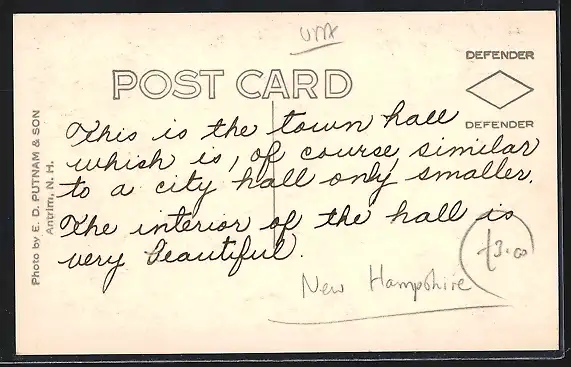 DEFENDER
POST CARD
DEFENDER
This is the town hall
whish is, of course, similar
to a city hall only smaller.
The interior of the hall is
very beautiful.
New Hampshire
Photo by E. D. PUTNAM & SON
Antrim, N. H.